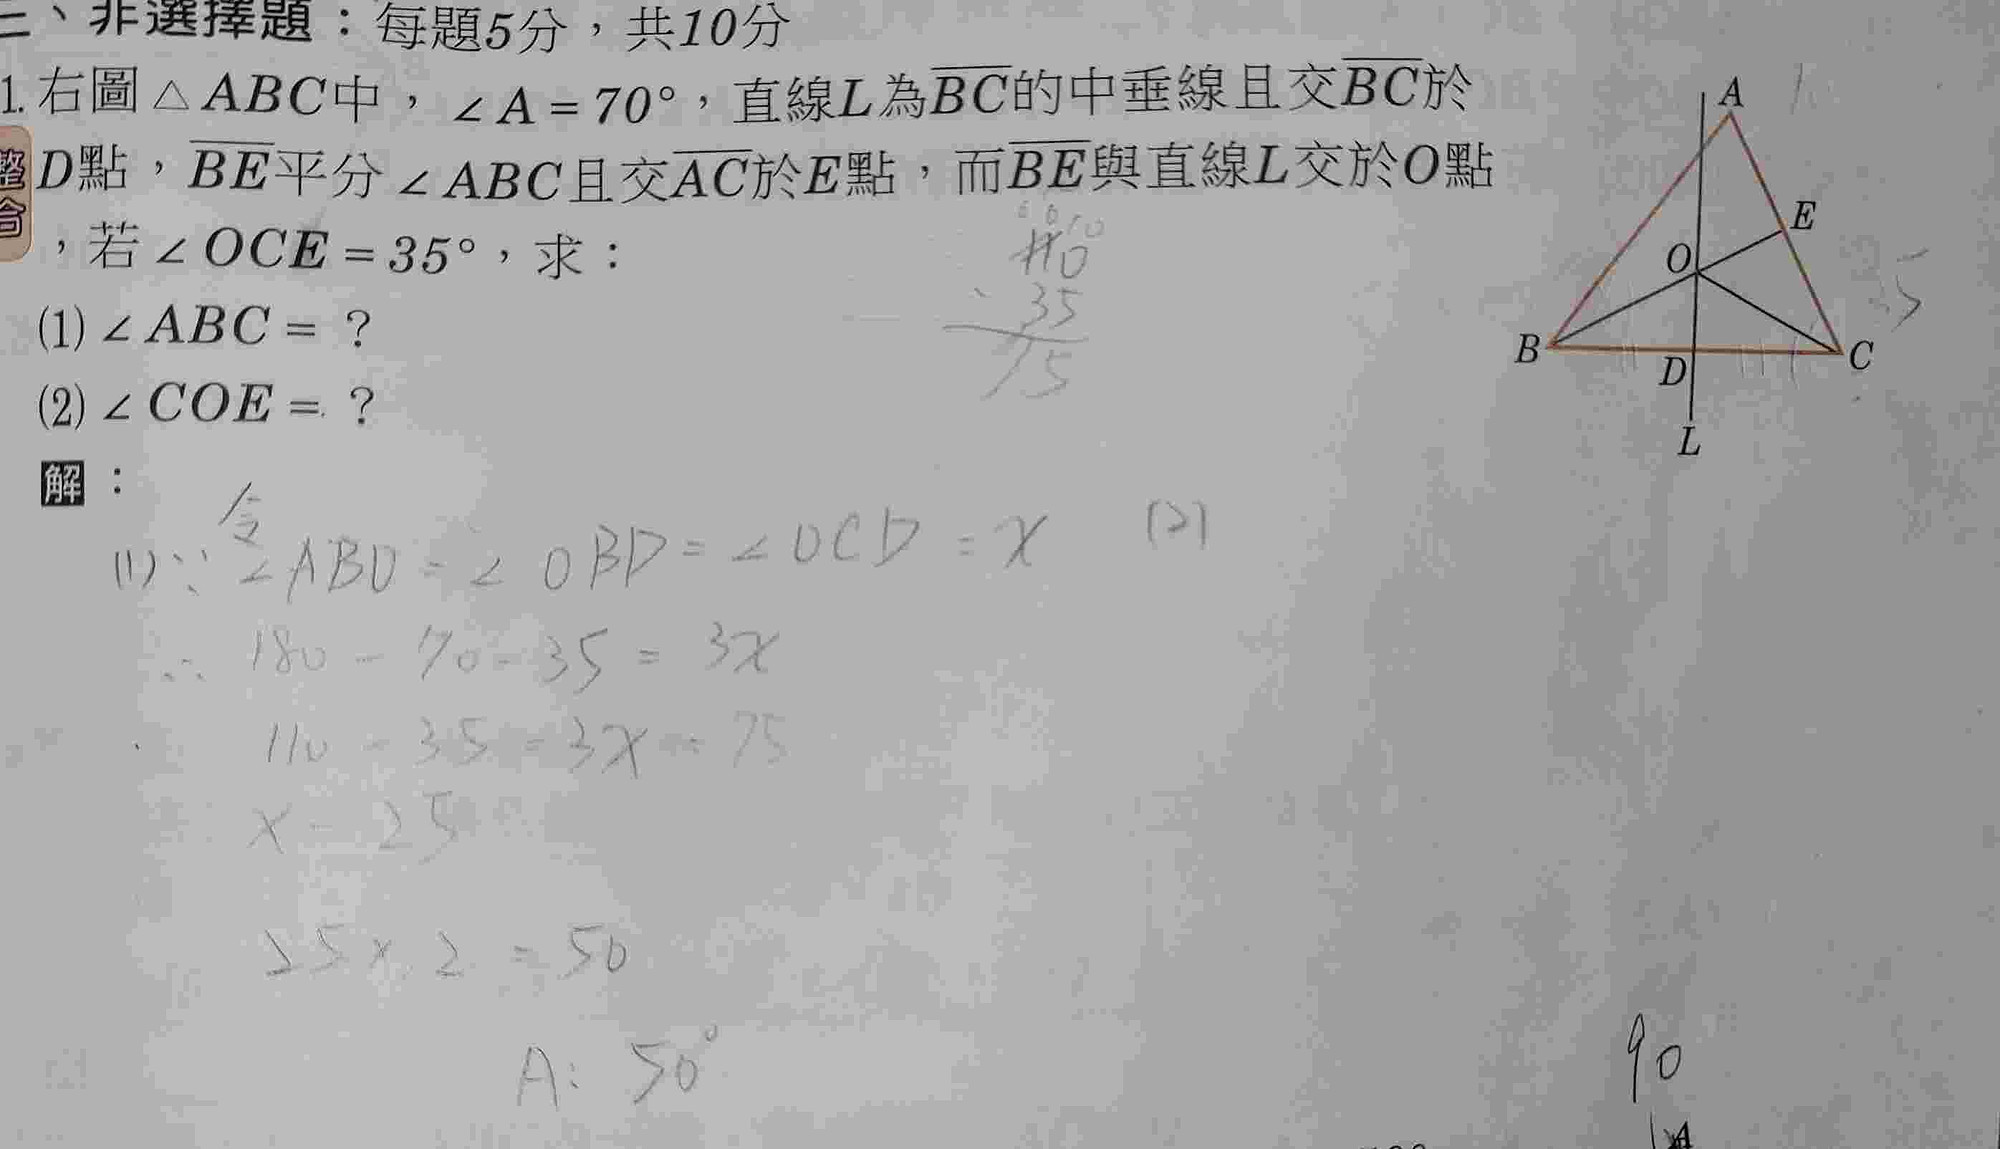 二、非選擇題：每題5分，共10分
1. 右圖△ABC中，∠A=70°，直線L為BC的中垂線且交BC於
整合
D點，BE平分∠ABC且交AC於E點，而BE與直線L交於O點
，若∠OCE=35°，求：
(1)∠ABC=？
(2)∠COE=？
解：
A
E
O
B
D
C
L
35
110
35
75
令
(1)∵∠ABO=∠OBD=∠OCD=x
(2)
∴ 180-70-35=3x
110-35=3x=75
x=25
25×2=50
A: 50°
90